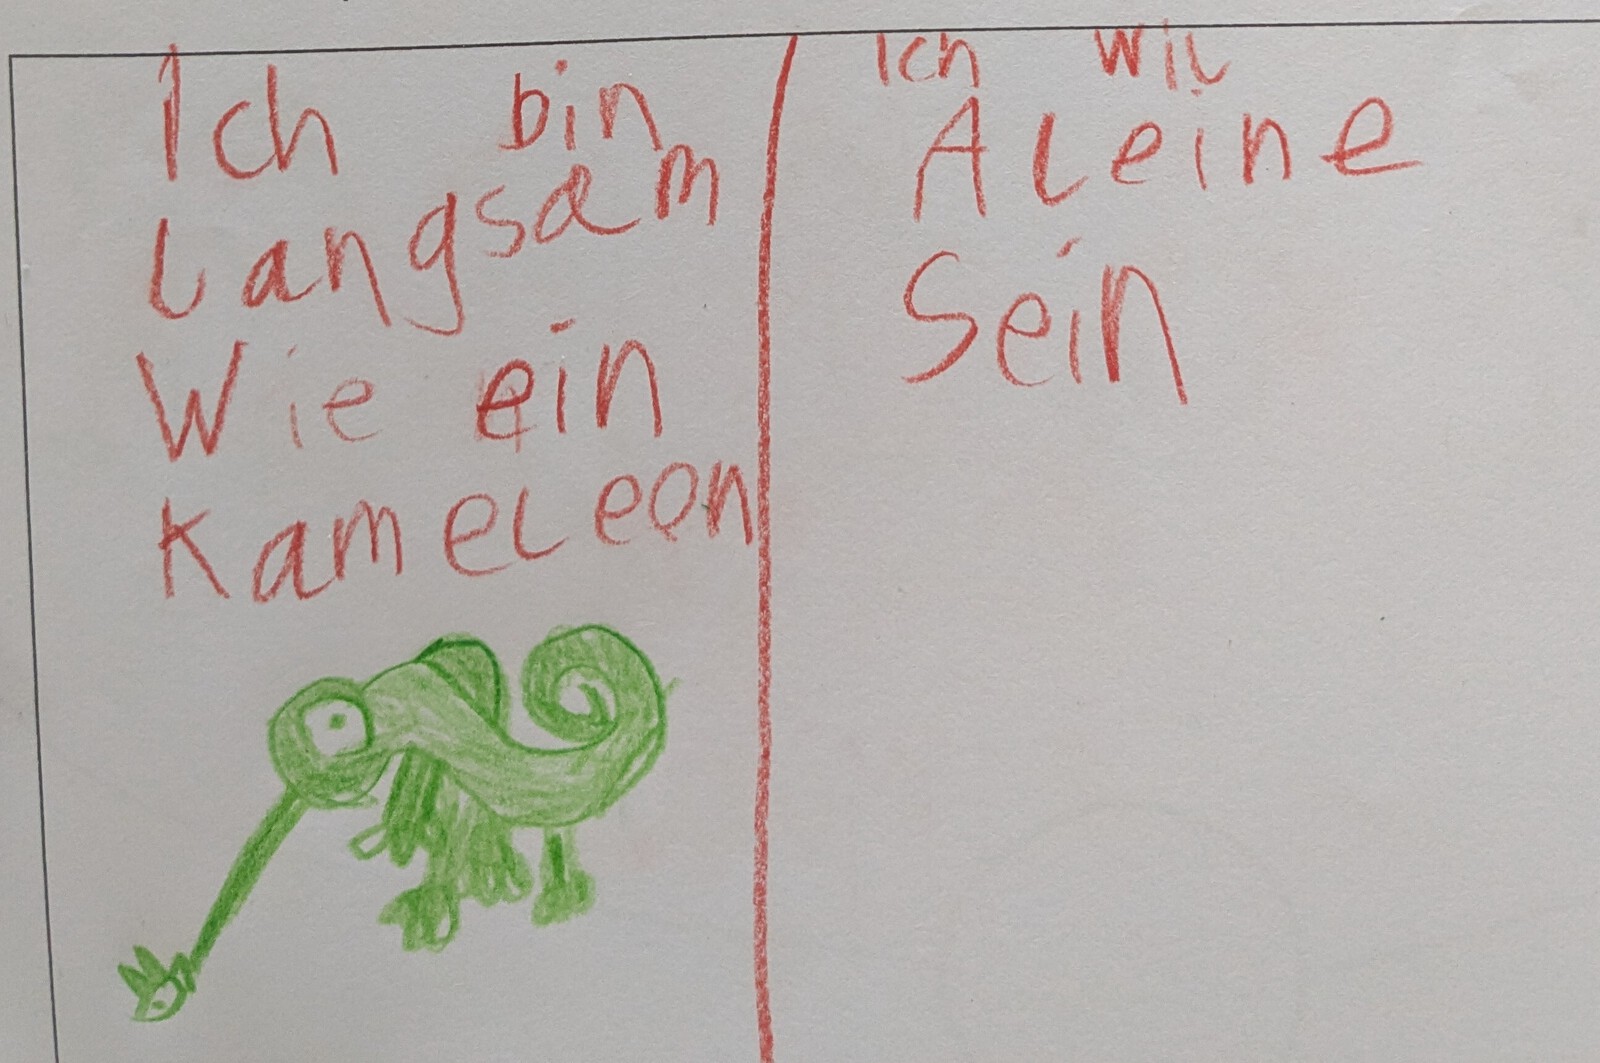 Ich bin
Langsam
Wie ein
Kameleon
Ich wil
Aleine
Sein